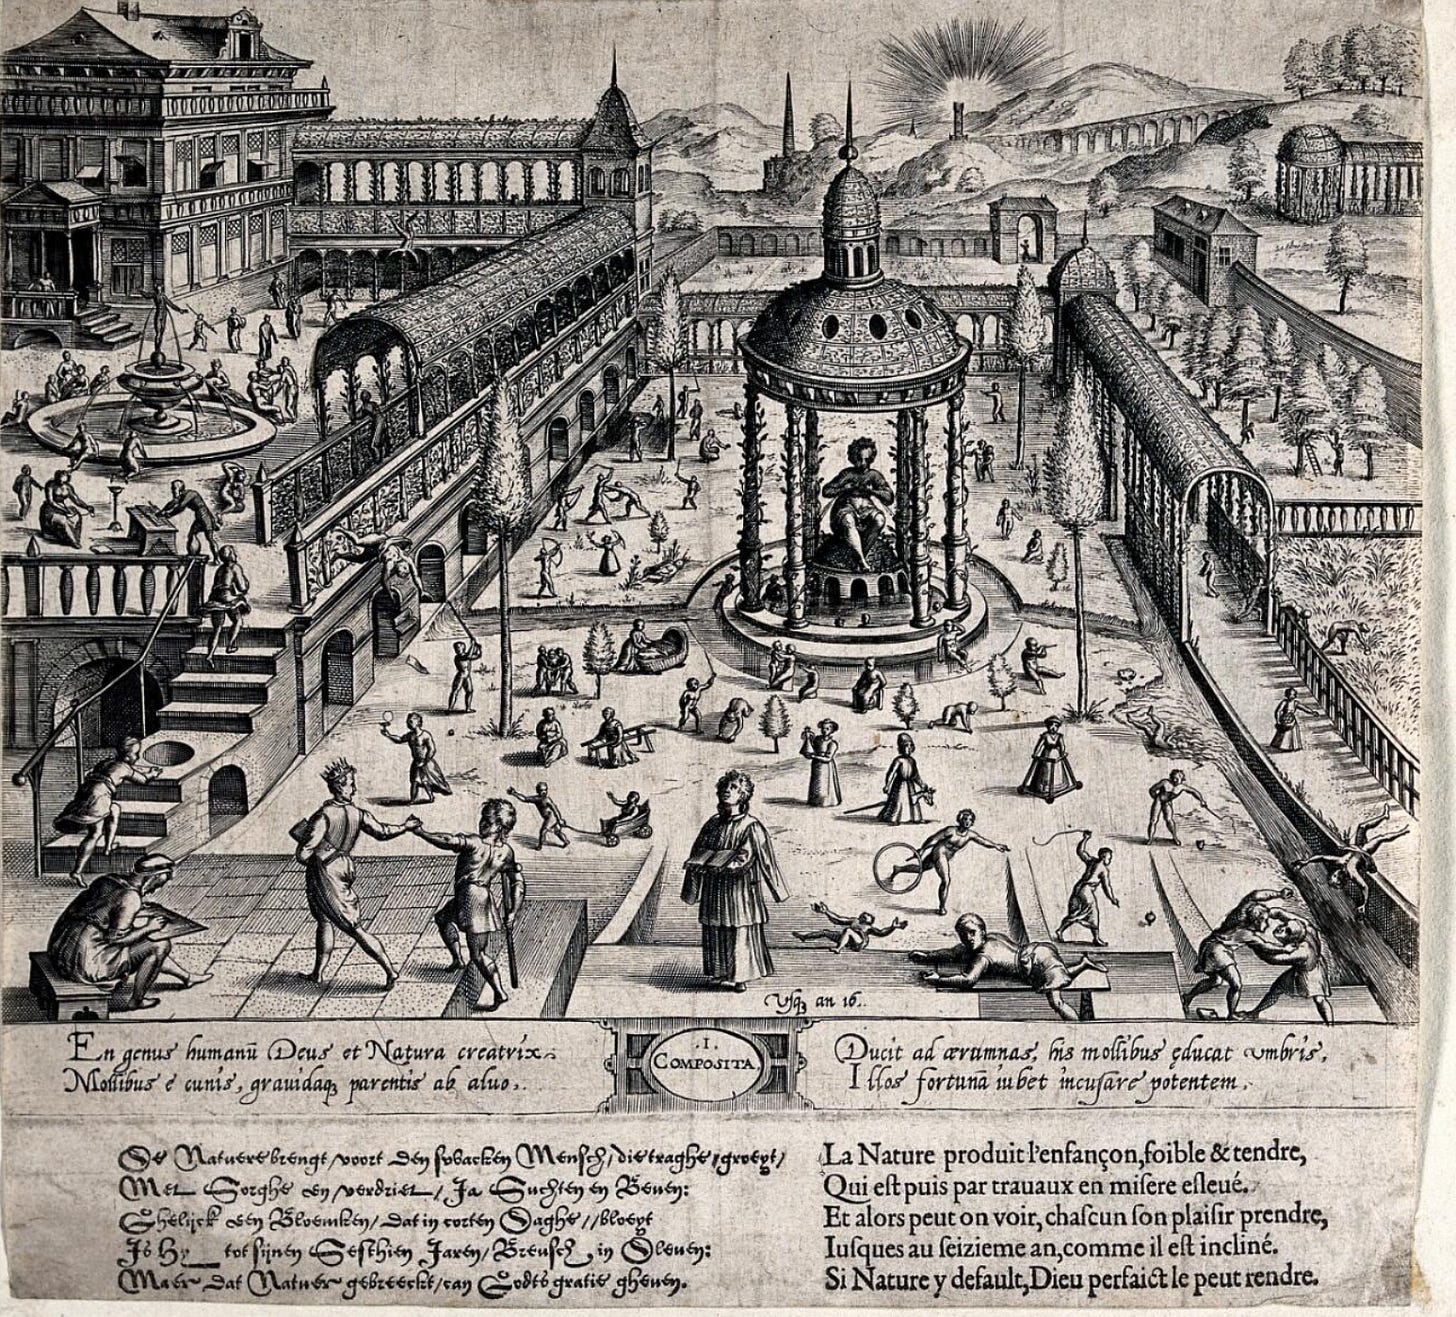 Usq̨ an 16.
En genus humanū Deus et Natura creatrix
Mollibus é cunis, grauidaq̨ parentis ab aluo,
.I.
COMPOSITA.
Ducit ad ærumnas, his mollibus ȩducat umbris,
Illos fortunā iubet incusare potentem.
De Natuere brengt voort den swacken Mensch, die traghe groeyt/
Met Sorghe en verdriet, Ja Suchten en Beuen:
Ghelijck een Bloemken/ dat in corten Daghe bloeyt
Is Hy tot sijnen Sesthien Jaren/ Breusch in Sleuen:
Maer dat Natuer gebreeckt/ can Godts gratie gheuen.
La Nature produit l'enfançon, foible & tendre,
Qui eſt puis par trauaux en miſere eſleué.
Et alors peut on voir, chaſcun ſon plaiſir prendre,
Iuſques au ſeizieme an, comme il eſt incliné.
Si Nature y default, Dieu perfaict le peut rendre.